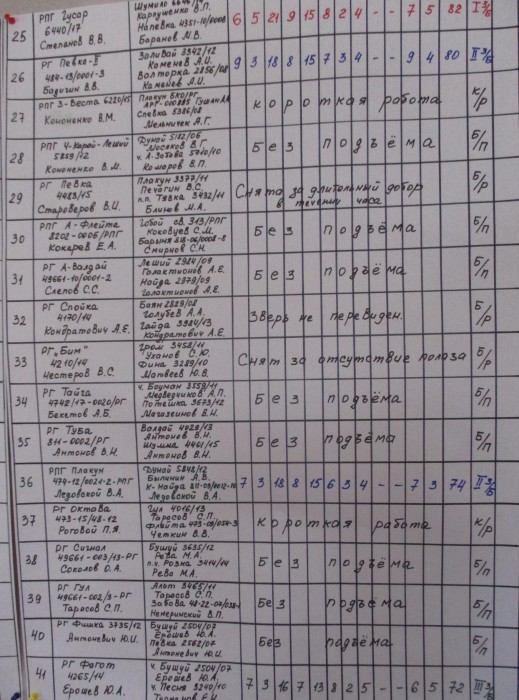 25 РПГ Гусар
6440/17
Степанов В.В.
Карпушенко В.П.
Напевка 4351-10/0008
Баранов М.В.
6 5 21 9 15 8 2 4 - - 7 5 82 I
26 РГ Певко-II
484-13/0001-3
Бодягин В.В.
Заливай 3342/12
Каменев А.И.
Волторка 2856/08
Каменев А.И.
9 3 18 8 15 7 3 4 - - 9 4 80 II
27 РПГ 3-Веста 6220/15
Кононенко В.М.
Плакун ВКО/РГ
Слевка 5386/08
Мельничек А.Г.
короткая работа к/р
28 РПГ 4-Карай-Леший
5259/12
Кононенко В.М.
Дунай 5182/06
Мосяков В.Г.
ч. А-Забава 5740/10
Комаров В.П.
Без подъёма Б/п
29 РГ Певка
4483/15
Староверов В.И.
Плакун 3377/11
Печугин В.С.
п.п. Тявка 3432/11
Блинов М.А.
Снята за длительный добор
в течении часа Б/р
30 РПГ А-Флейта
8202-0006/РПГ
Кокарев Е.А.
Гобой св. 313/РПГ
Коковцев С.М.
Барыня 818-06/0008-8
Смирнов С.Н.
Без подъёма Б/п
31 РГ А-Валдай
49661-10/0001-2
Слепов С.С.
Леший 2924/09
Галактионов А.Е.
Найда 2979/09
Галактионов А.Е.
Без подъёма Б/п
32 РГ Спойка
4170/14
Кондратович А.Е.
Баян 2829/08
Голубев А.А.
Гайда 3324/13
Кондратович А.Е.
Зверь не перевиден. Б/р
33 РГ „Бим"
4210/14
Нестеров В.С.
Гром 3458/11
Уханов С.Ю.
Фина 3289/10
Матвеев Ю.В.
Снят за отсутствие полаза Б/р
34 РГ Тайга
4742/17-0020/РГ
Бекетов А.Б.
ч. Боуман 3559/11
Медведчиков А.П.
Потешка 3673/12
Магазеинов В.Н.
Без подъёма Б/п
35 РГ Туба
811-0002/РГ
Антонов В.Н.
Валдай 4028/13
Антонов В.Н.
Шумка 4401/15
Антонов В.Н.
Без подъёма Б/п
36 РПГ Плакун
474-12/0021-2-РПГ
Ледовской В.А.
Дунай 5848/12
Былинин А.В.
К-Найда 811-09/0012-10
Ледовской В.А.
7 3 18 8 15 6 3 4 - - 7 3 74 II
37 РГ Октава
473-15/48-12
Роговой П.Я.
Гул 4016/13
Тарасов С.П.
Четкин В.В.
короткая работа к/р
38 РГ Сигнал
49661-003/13-РГ
Соколов О.А.
Бушуй 3635/12
Рева М.А.
п.ч. Розка 3414/14
Рева М.А.
Без подъёма Б/п
39 РГ Гул
49661-002/3-РГ
Тарасов С.П.
Альт 3465/11
Тарасов С.П.
Немеринский В.П.
Без подъема Б/п
40 РГ Фишка 3735/12
Антоневич Ю.И.
Бушуй 2504/07
Ерошев Ю.А.
Певка 2562/07
Антоневич Ю.И.
Без подъёма Б/п
41 РГ Фагот
4265/14
Ерошев Ю.А.
ч. Бушуй 2504/07
Ерошев Ю.А.
ч. Песня 3240/10
7 3 16 7 13 8 2 5 - - 6 5 72 III